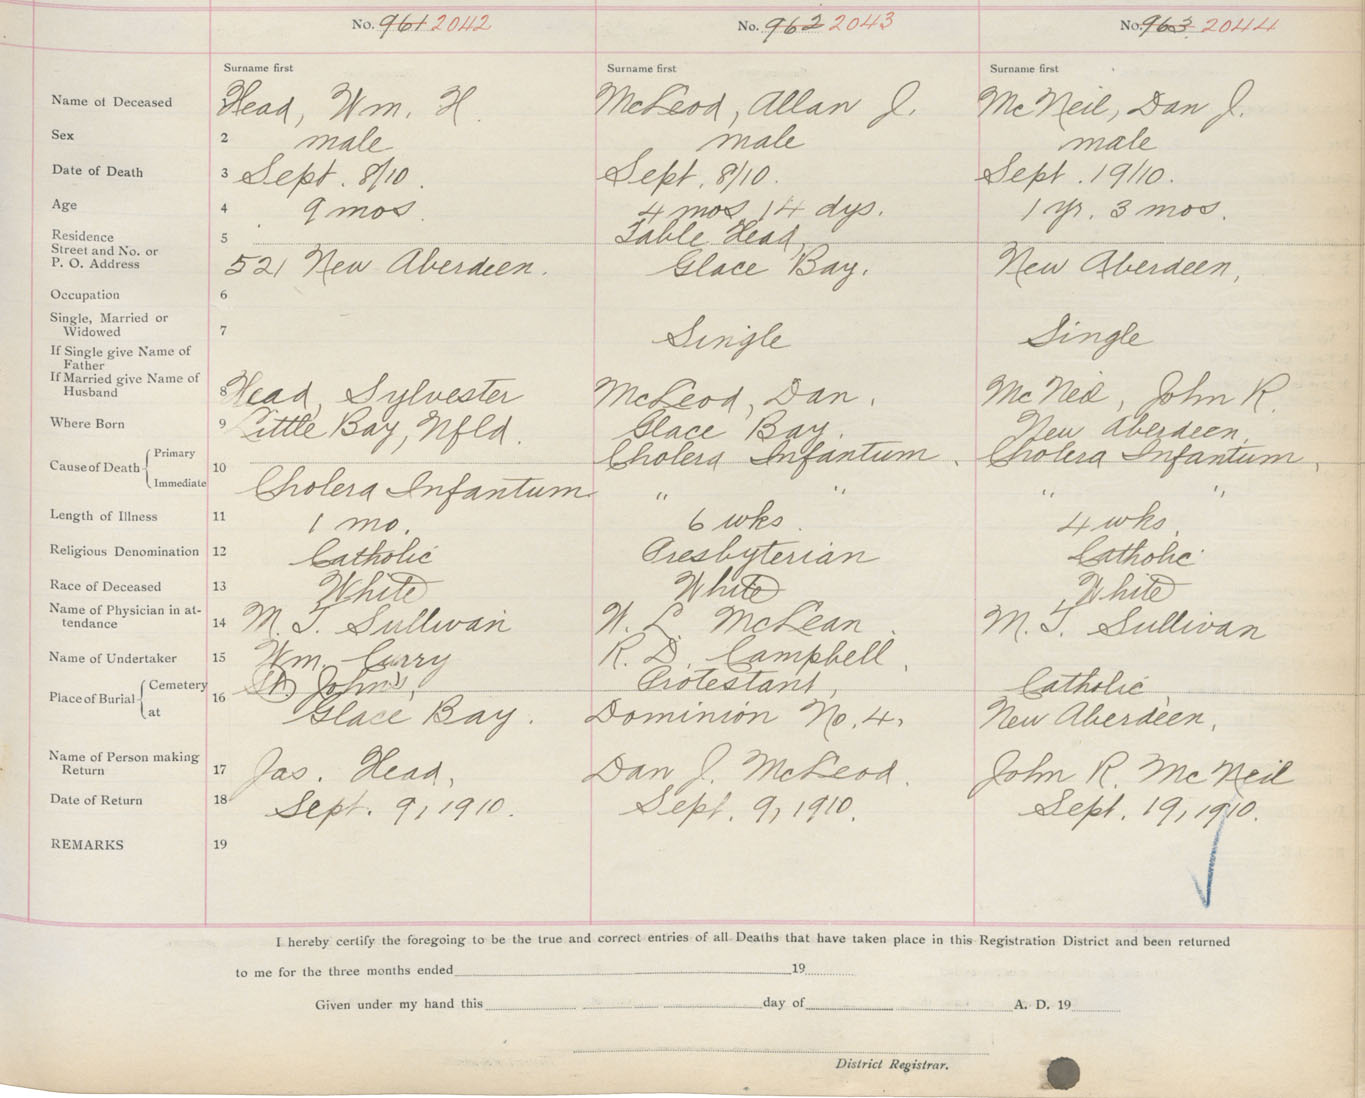 No. 961 2042 No. 962 2043 No. 963 2044
Surname first Surname first Surname first
Name of Deceased Head, Wm. H. McLeod, Allan J. McNeil, Dan J.
Sex 2 male male male
Date of Death 3 Sept. 8/10. Sept. 8/10. Sept. 19/10.
Age 4 9 mos. 4 mos 14 dys. 1 yr. 3 mos.
Residence 5 Table Head,
Street and No. or
P. O. Address 521 New Aberdeen. Glace Bay. New Aberdeen,
Occupation 6
Single, Married or
Widowed 7 Single Single
If Single give Name of
Father
If Married give Name of
Husband 8 Head, Sylvester McLeod, Dan. McNeil, John R.
Where Born 9 Little Bay, Nfld. Glace Bay. New Aberdeen,
Cause of Death Primary 10 Cholera Infantum. Cholera Infantum,
Immediate Cholera Infantum " " " "
Length of Illness 11 1 mo. 6 wks. 4 wks.
Religious Denomination 12 Catholic Presbyterian Catholic
Race of Deceased 13 White White White
Name of Physician in at-
tendance 14 M. T. Sullivan W. L. McLean M. T. Sullivan
Name of Undertaker 15 Wm. Curry R. D. Campbell.
Place of Burial Cemetery 16 St. John's, Protestant, Catholic,
at Glace Bay. Dominion No. 4, New Aberdeen,
Name of Person making
Return 17 Jas. Head, Dan J. McLeod. John R. McNeil
Date of Return 18 Sept. 9, 1910. Sept. 9, 1910. Sept. 19, 1910.
REMARKS 19
I hereby certify the foregoing to be the true and correct entries of all Deaths that have taken place in this Registration District and been returned
to me for the three months ended 19
Given under my hand this day of A. D. 19
District Registrar.